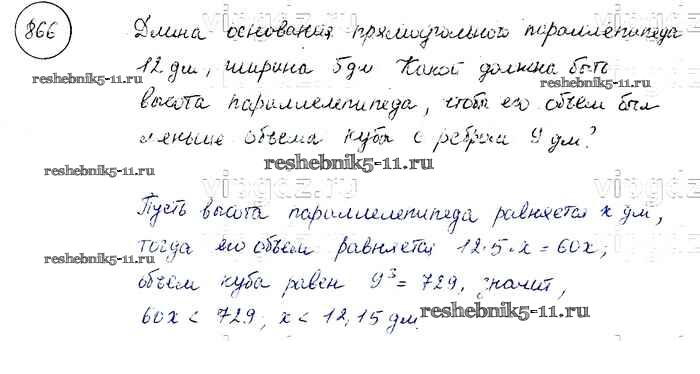 866
Длина основания прямоугольного параллелепипеда
12 дм, ширина 5 дм. Какой должна быть
высота параллелепипеда, чтобы его объем был
меньше объема куба с ребром 9 дм?
Пусть высота параллелепипеда равняется x дм,
тогда его объем равняется 12·5·x = 60x;
объем куба равен 9³ = 729, значит,
60x < 729; x < 12,15 дм.
reshebnik5-11.ru
reshebnik5-11.ru
reshebnik5-11.ru
reshebnik5-11.ru
reshebnik5-11.ru
reshebnik5-11.ru